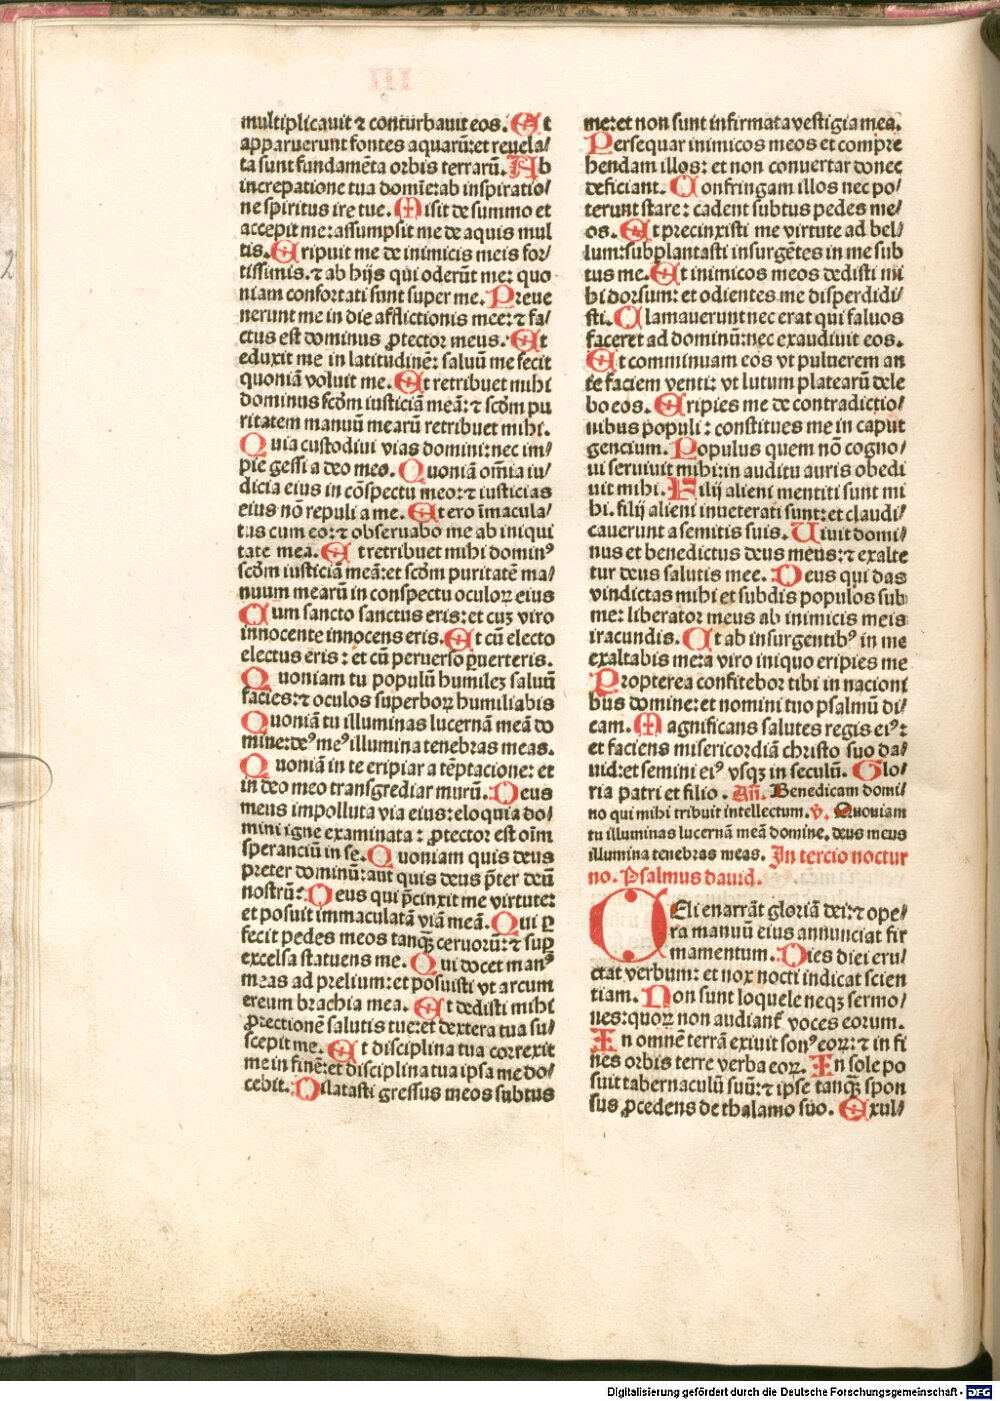 multiplicauit ⁊ conturbauit eos. Et
apparuerunt fontes aquarū: et reuela/
ta sunt fundamēta orbis terrarū. Ab
increpatione tua domīe: ab inspiratio/
ne spiritus ire tue. Misit de summo et
accepit me: assumpsit me de aquis mul
tis. Eripuit me de inimicis meis for/
tissimis. ⁊ ab hijs qui oderūt me: quo
niam confortati sunt super me. Preue
nerunt me in die afflictionis mee: ⁊ fa/
ctus est dominus ꝓtector meus. Et
eduxit me in latitudinē: saluū me fecit
quoniā voluit me. Et retribuet mihi
dominus scōm iusticiā meā: ⁊ scōm pu
ritatem manuū mearū retribuet mihi.
Quia custodiui vias domini: nec im/
pie gessi a deo meo. Quoniā om̄ia iu/
dicia eius in cōspectu meo: ⁊ iusticias
eius nō repuli a me. Et ero īmacula/
tus cum eo: ⁊ obseruabo me ab iniqui
tate mea. Et retribuet mihi dominꝰ
scōm iusticiā meā: et scōm puritatē ma/
nuum mearū in conspectu oculoꝝ eius
Cum sancto sanctus eris: et cuꝫ viro
innocente innocens eris. Et cū electo
electus eris: et cū peruerso ꝑuerteris.
Quoniam tu populū humileꝫ saluū
facies: ⁊ oculos superboꝝ humiliabis
Quoniā tu illuminas lucernā meā do
mine: deꝰ meꝰ illumina tenebras meas.
Quoniā in te eripiar a tēptacione: et
in deo meo transgrediar murū. Deus
meus impolluta via eius: eloquia do/
mini igne examinata: ꝓtector est oīm
speranciū in se. Quoniam quis deus
preter dominū: aut quis deus p̄ter deū
nostrū: Deus qui p̄cinxit me virtute:
et posuit immaculatā viā meā. Qui ꝑ
fecit pedes meos tanqꝫ ceruorū: ⁊ suꝑ
excelsa statuens me. Qui docet manꝰ
meas ad prelium: et posuisti vt arcum
ereum brachia mea. Et dedisti mihi
ꝓtectionē salutis tue: et dextera tua su/
scepit me. Et disciplina tua correxit
me in finē: et disciplina tua ipsa me do/
cebit. Dilatasti gressus meos subtus
me: et non sunt infirmata vestigia mea.
Persequar inimicos meos et compre
hendam illos: et non conuertar donec
deficiant. Confringam illos nec po/
terunt stare: cadent subtus pedes me/
os. Et precinxisti me virtute ad bel/
lum: subplantasti insurgētes in me sub
tus me. Et inimicos meos dedisti mi
hi dorsum: et odientes me disperdidi/
sti. Clamauerunt nec erat qui saluos
faceret ad dominū: nec exaudiuit eos.
Et comminuam eos vt puluerem an
te faciem venti: vt lutum platearū dele
bo eos. Eripies me de contradictio/
nibus populi: constitues me in caput
gencium. Populus quem nō cogno/
ui seruiuit mihi: in auditu auris obedi
uit mihi. Filij alieni mentiti sunt mi
hi. filij alieni inueterati sunt: et claudi/
cauerunt a semitis suis. Uiuit domi/
nus et benedictus deus meus: ⁊ exalte
tur deus salutis mee. Deus qui das
vindictas mihi et subdis populos sub
me: liberator meus ab inimicis meis
iracundis. Et ab insurgentibꝰ in me
exaltabis me: a viro iniquo eripies me
Propterea confitebor tibi in nacioni
bus domine: et nomini tuo psalmū di/
cam. Magnificans salutes regis eiꝰ:
et faciens misericordiā christo suo da/
uid: et semini eiꝰ vsqꝫ in seculū. Glo/
ria patri et filio. Añ. Benedicam domi/
no qui mihi tribuit intellectum. ℣. Quoniam
tu illuminas lucernā meā domine. deus meus
illumina tenebras meas. In tercio noctur
no. Psalmus dauid.
Celi enarrāt gloriā dei: ⁊ ope/
ra manuū eius annunciat fir
mamentum. Dies diei eru/
ctat verbum: et nox nocti indicat scien
tiam. Non sunt loquele neqꝫ sermo/
nes: quoꝝ non audianť voces eorum.
In omnē terrā exiuit sonꝰ eoꝝ: ⁊ in fi
nes orbis terre verba eoꝝ. In sole po
suit tabernaculū suū: ⁊ ipse tanqꝫ spon
sus ꝓcedens de thalamo suo. Exul/
Digitalisierung gefördert durch die Deutsche Forschungsgemeinschaft - DFG